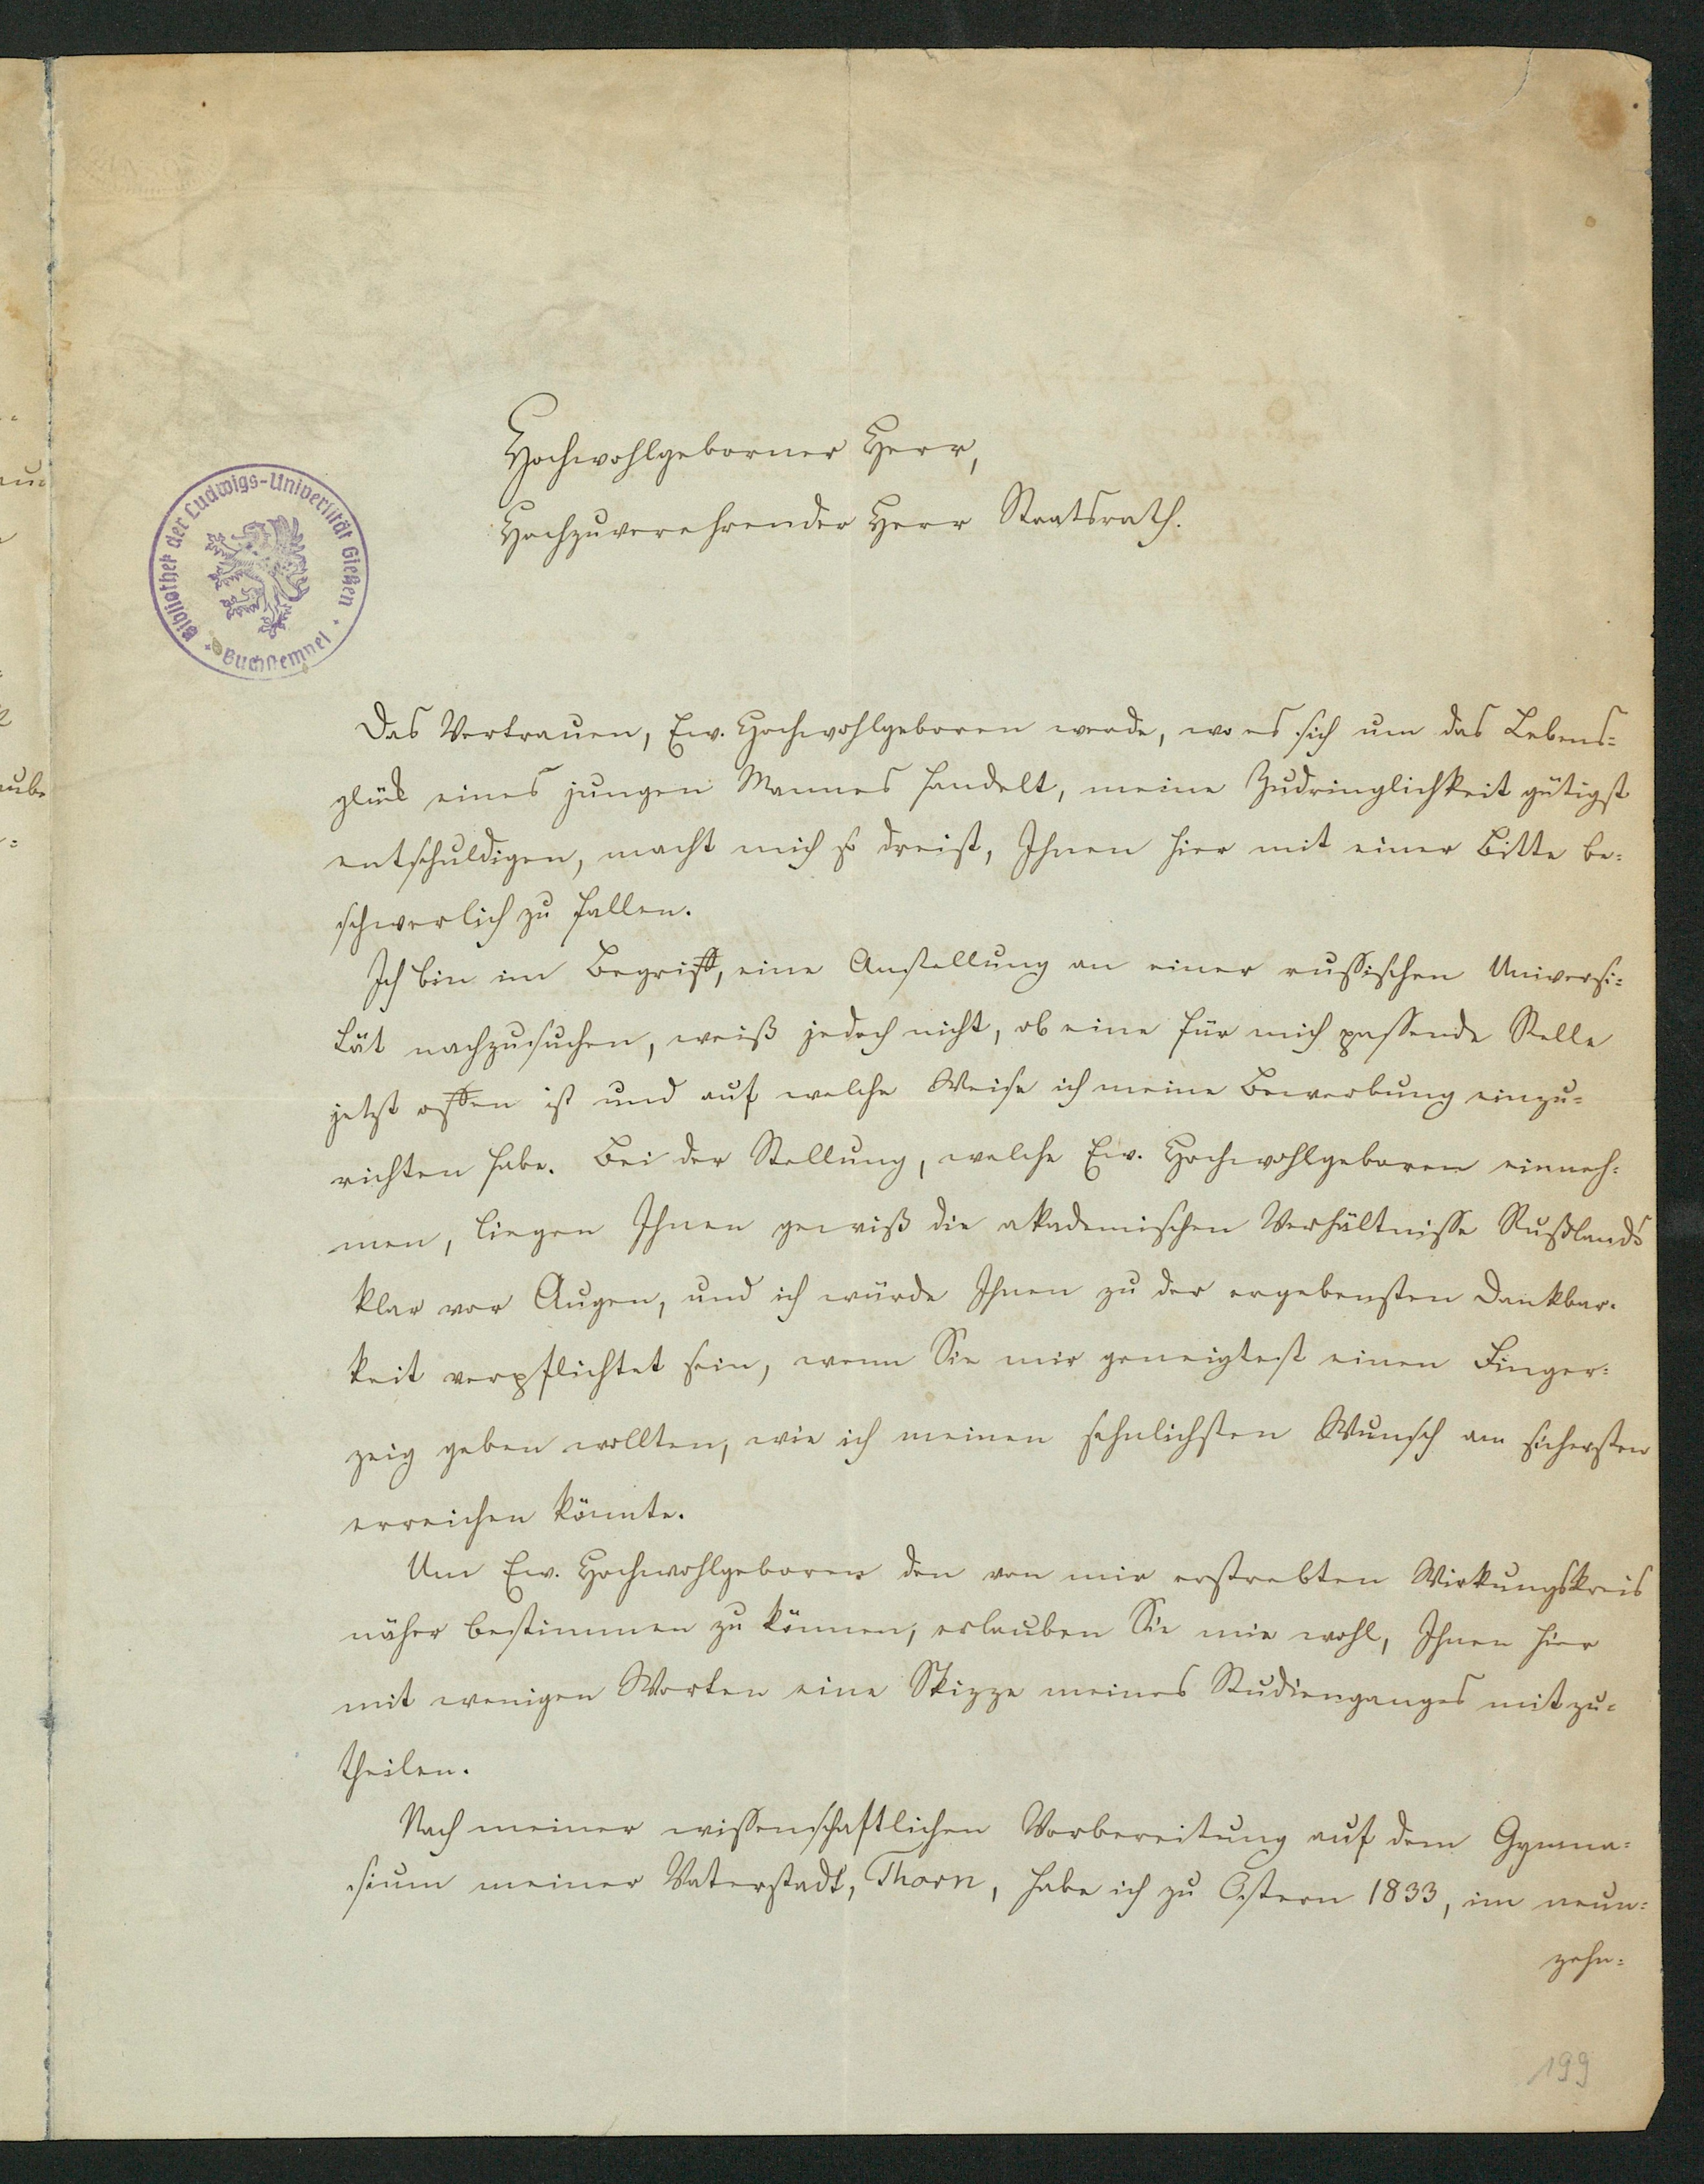 Hochwohlgeborner Herr,
Hochzuverehrender Herr Staatsrath.
Bibliothek der Ludwigs-Universität Gießen
Buchstempel
Das Vertrauen, Ew. Hochwohlgeboren werde, wo es sich um das Lebens=
glück eines jungen Mannes handelt, meine Zudringlichkeit gütigst
entschuldigen, macht mich so dreist, Ihnen hier mit einer Bitte be=
schwerlich zu fallen.
Ich bin im Begriff, eine Anstellung an einer russischen Universi=
tät nachzusuchen, weiß jedoch nicht, ob eine für mich passende Stelle
jetzt offen ist und auf welche Weise ich meine Bewerbung einzu=
richten habe. Bei der Stellung, welche Ew. Hochwohlgeboren einneh=
men, liegen Ihnen gewiß die akademischen Verhältnisse Rußlands
klar vor Augen, und ich würde Ihnen zu der ergebensten Dankbar=
keit verpflichtet sein, wenn Sie mir geneigtest einen Finger=
zeig geben wollten, wie ich meinen sehnlichsten Wunsch am sichersten
erreichen könnte.
Um Ew. Hochwohlgeboren den von mir erstrebten Wirkungskreis
näher bestimmen zu können, erlauben Sie mir wohl, Ihnen hier
mit wenigen Worten eine Skizze meines Studienganges mitzu=
theilen.
Nach meiner wissenschaftlichen Vorbereitung auf dem Gymna=
sium meiner Vaterstadt, Thorn, habe ich zu Ostern 1833, im neun=
zehn=
199